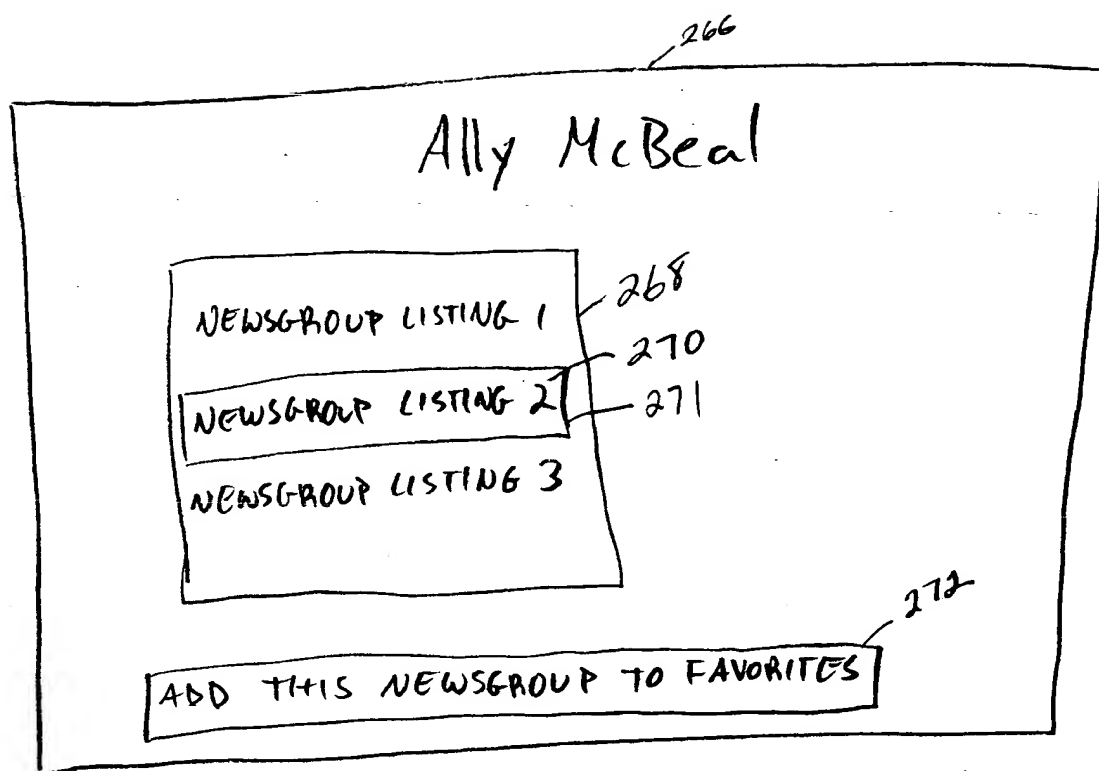 266
Ally McBeal
NEWSGROUP LISTING 1
268
270
NEWSGROUP LISTING 2
271
NEWSGROUP LISTING 3
272
ADD THIS NEWSGROUP TO FAVORITES